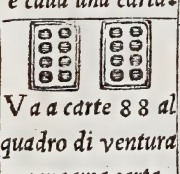 e cada una carta.
V a a carte 88 al
quadro di ventura